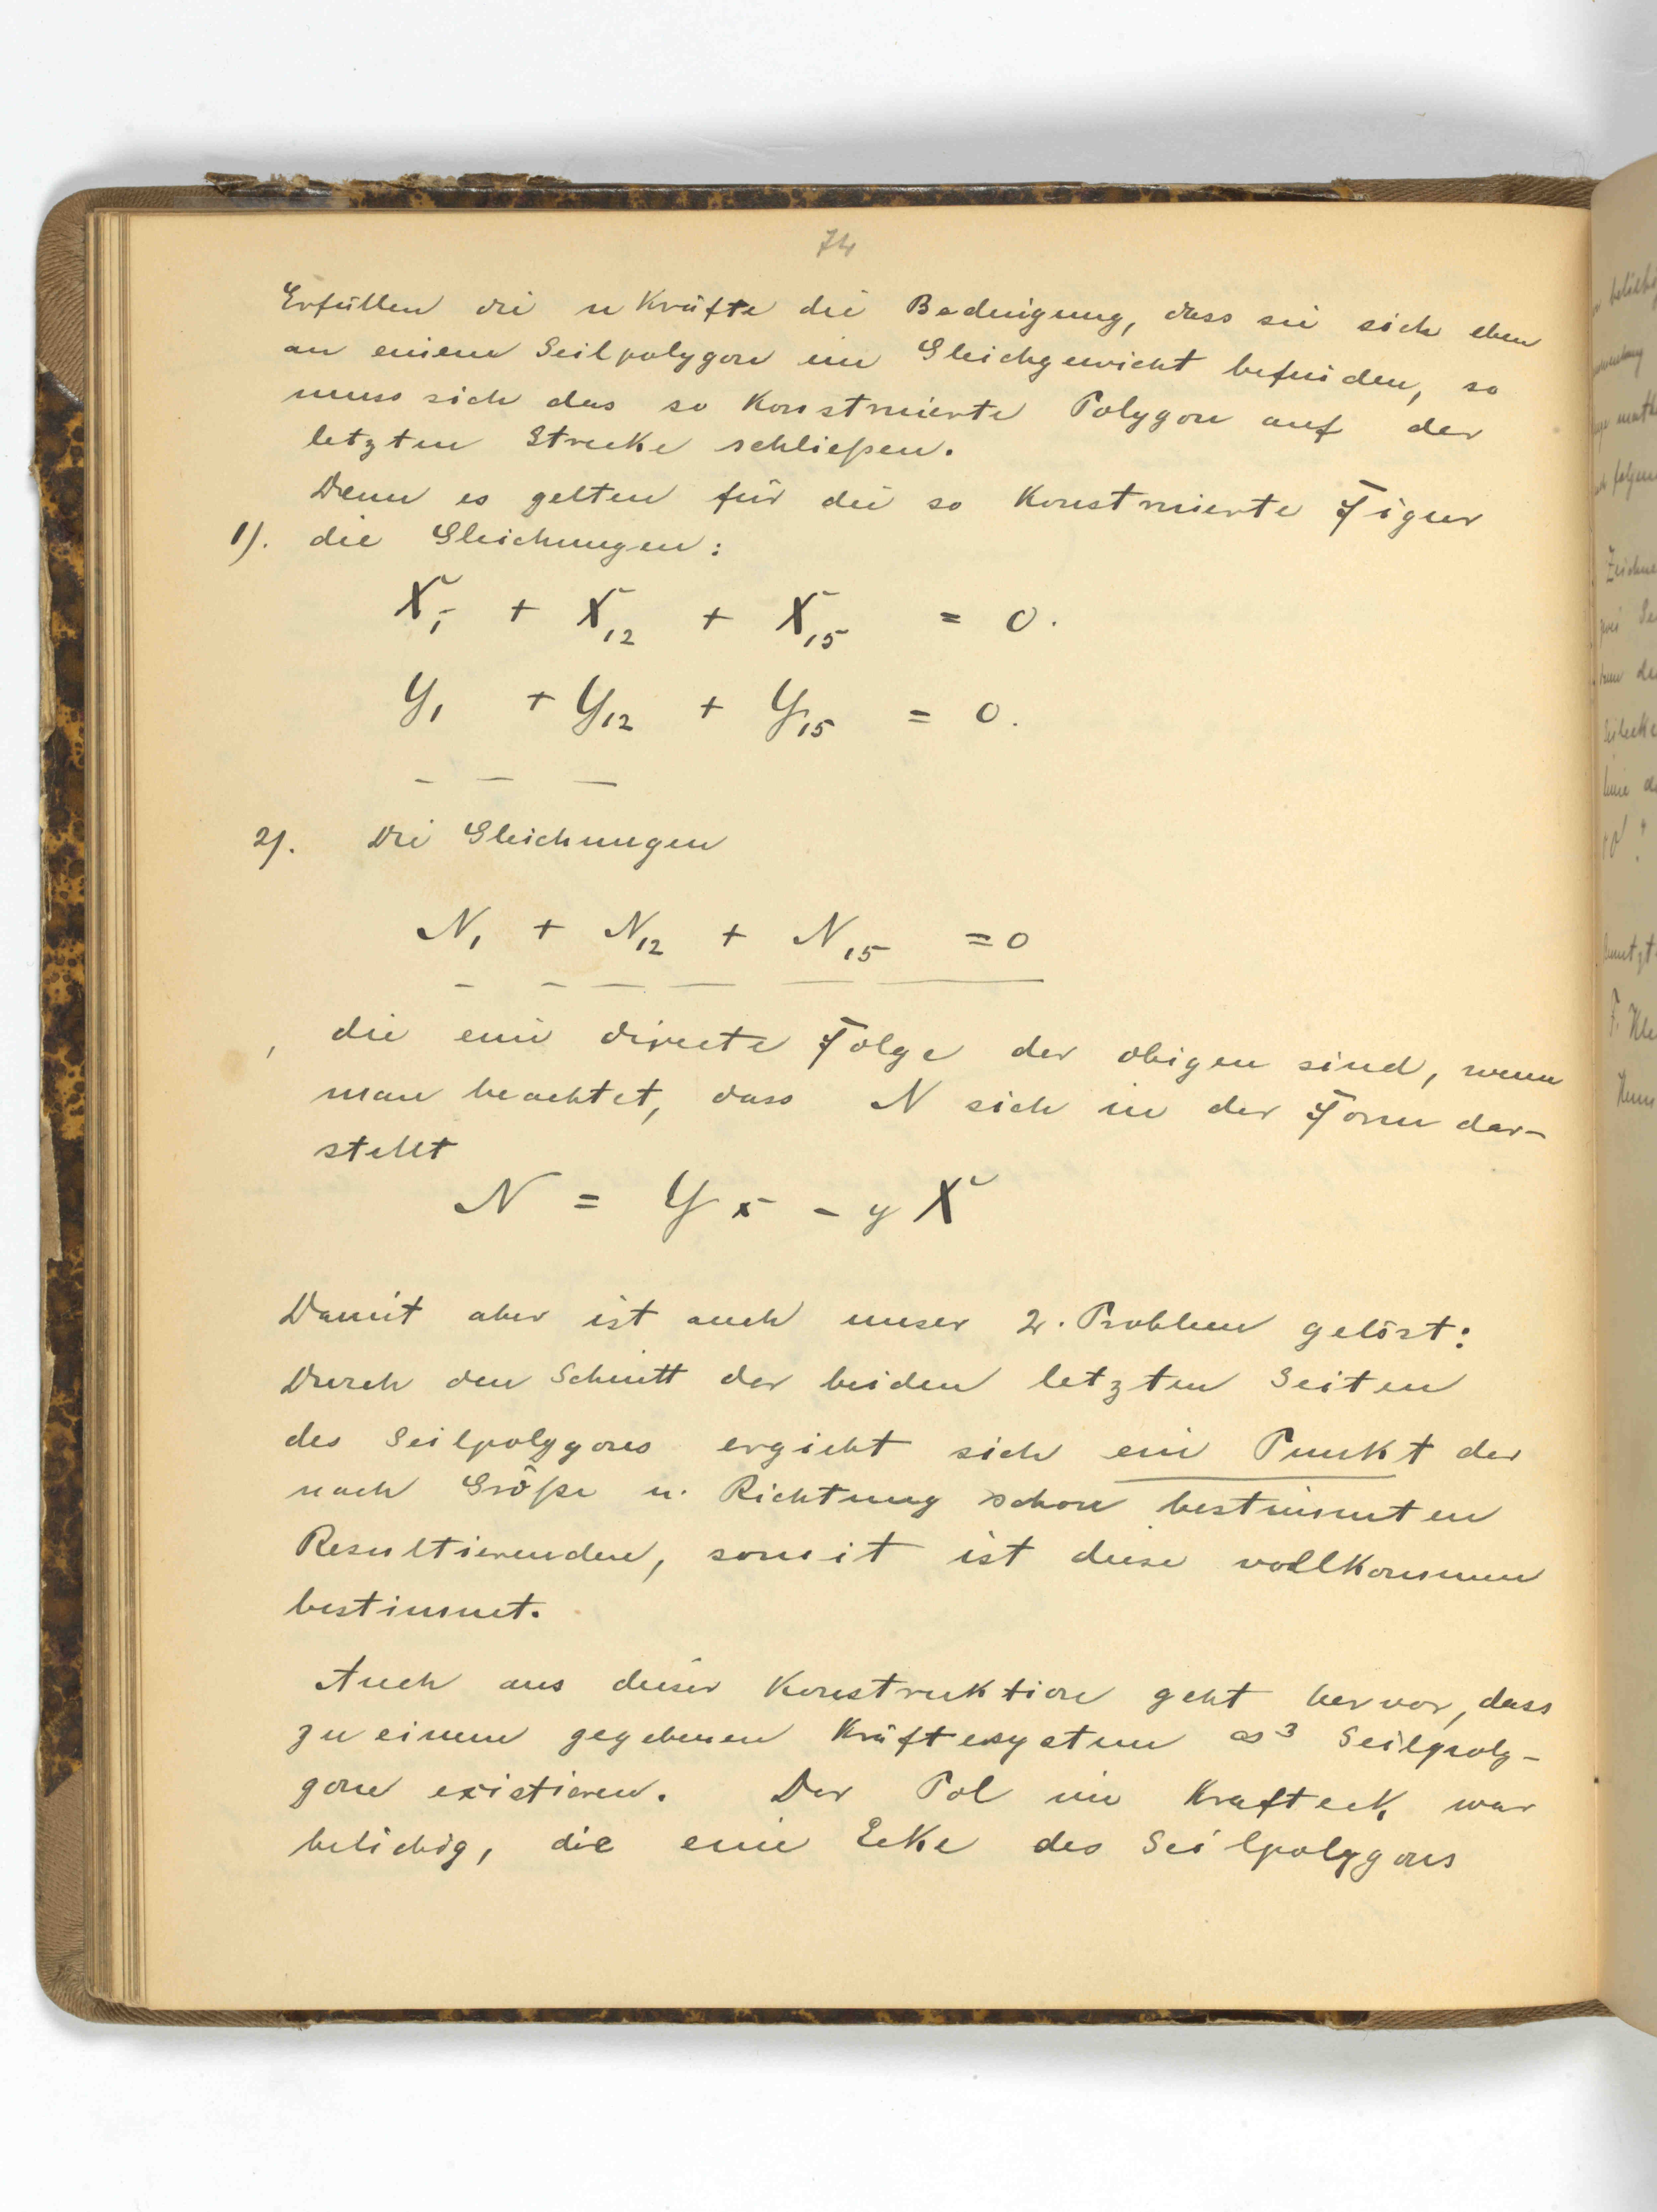 74
Erfüllen die n Kräfte die Bedingung, dass sie sich eben
an einem Seilpolygon im Gleichgewicht befinden, so
muss sich das so konstruierte Polygon auf der
letzten Strecke schließen.
Denn es gelten für die so konstruierte Figur
1). die Gleichungen:
X₁ + X₁₂ + X₁₅ = 0.
Y₁ + Y₁₂ + Y₁₅ = 0.
— — —
2). Die Gleichungen
N₁ + N₁₂ + N₁₅ = 0
— — — — — —
die eine directe Folge der obigen sind, wenn
man beachtet, dass N sich in der Form dar-
stellt
N = Y x - y X
Damit aber ist auch unser 2. Problem gelöst:
Durch den Schnitt der beiden letzten Seiten
des Seilpolygons ergiebt sich ein Punkt der
nach Größe u. Richtung schon bestimmten
Resultierenden, somit ist diese vollkommen
bestimmt.
Auch aus dieser Konstruktion geht hervor, dass
zu einem gegebenen Kräftesystem ∞³ Seilpoly-
gone existieren. Der Pol im Krafteck war
beliebig, die eine Ecke des Seilpolygons